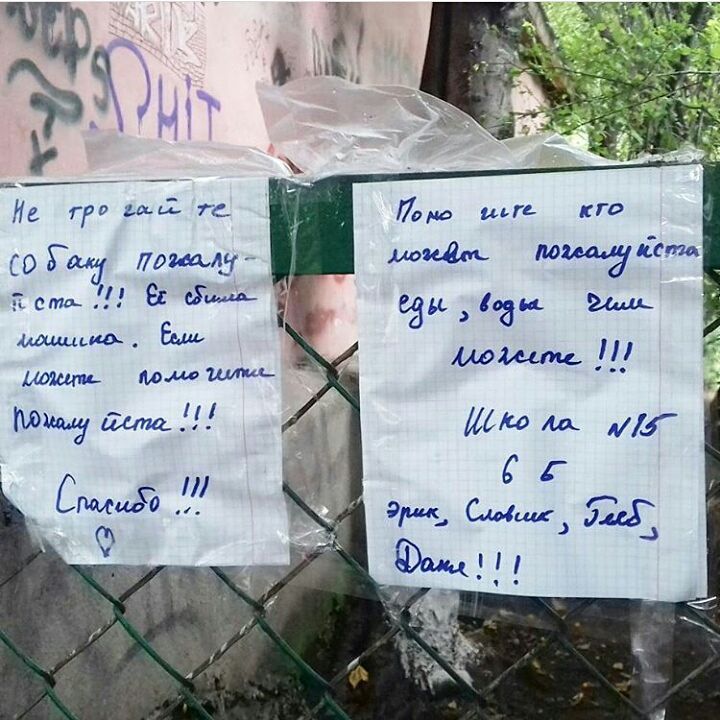 ТІНЬ
Не трогайте
собаку пожалу-
йста!!! Её сбила
машина. Если
можете помогите
пожалуйста!!!
Спасибо!!!
Помогите кто
может пожалуйста
еды, воды чем
можете!!!
Школа №15
6 Б
Эрик, Славик, Глеб,
Даня!!!